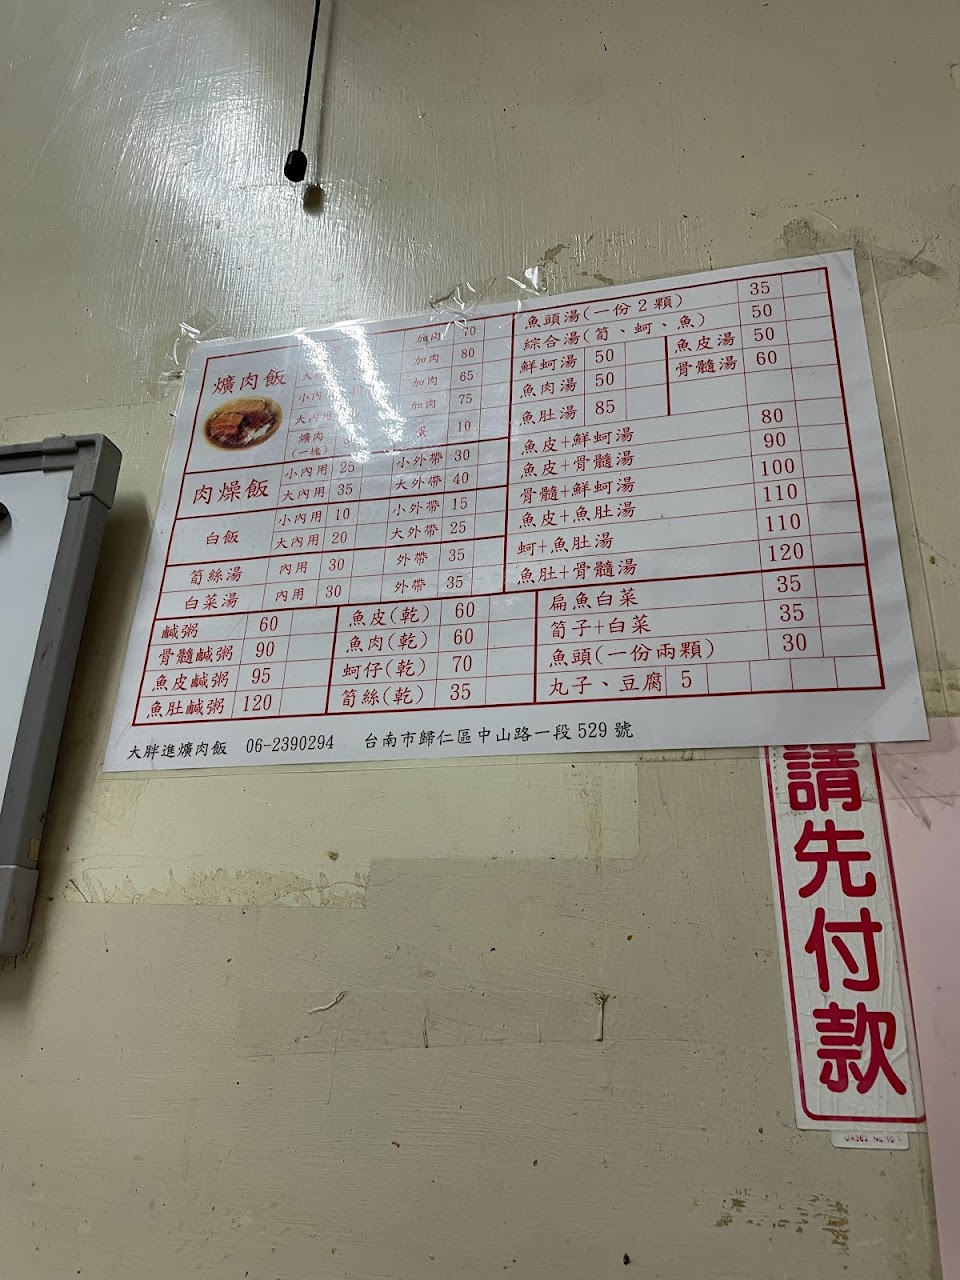 爌肉飯
加肉 70
加肉 80
小內用 加肉 65
大內用 加肉 75
爌肉 (一塊) 30 蛋 10
肉燥飯
小內用 25 小外帶 30
大內用 35 大外帶 40
白飯
小內用 10 小外帶 15
大內用 20 大外帶 25
筍絲湯 內用 30 外帶 35
白菜湯 內用 30 外帶 35
魚頭湯(一份2顆) 35
綜合湯(筍、蚵、魚) 50
鮮蚵湯 50 魚皮湯 50
魚肉湯 50 骨髓湯 60
魚肚湯 85
魚皮+鮮蚵湯 80
魚皮+骨髓湯 90
骨髓+鮮蚵湯 100
魚皮+魚肚湯 110
蚵+魚肚湯 110
魚肚+骨髓湯 120
鹹粥 60
骨髓鹹粥 90
魚皮鹹粥 95
魚肚鹹粥 120
魚皮(乾) 60
魚肉(乾) 60
蚵仔(乾) 70
筍絲(乾) 35
扁魚白菜 35
筍子+白菜 35
魚頭(一份兩顆) 30
丸子、豆腐 5
大胖進爌肉飯 06-2390294 台南市歸仁區中山路一段529號
請先付款